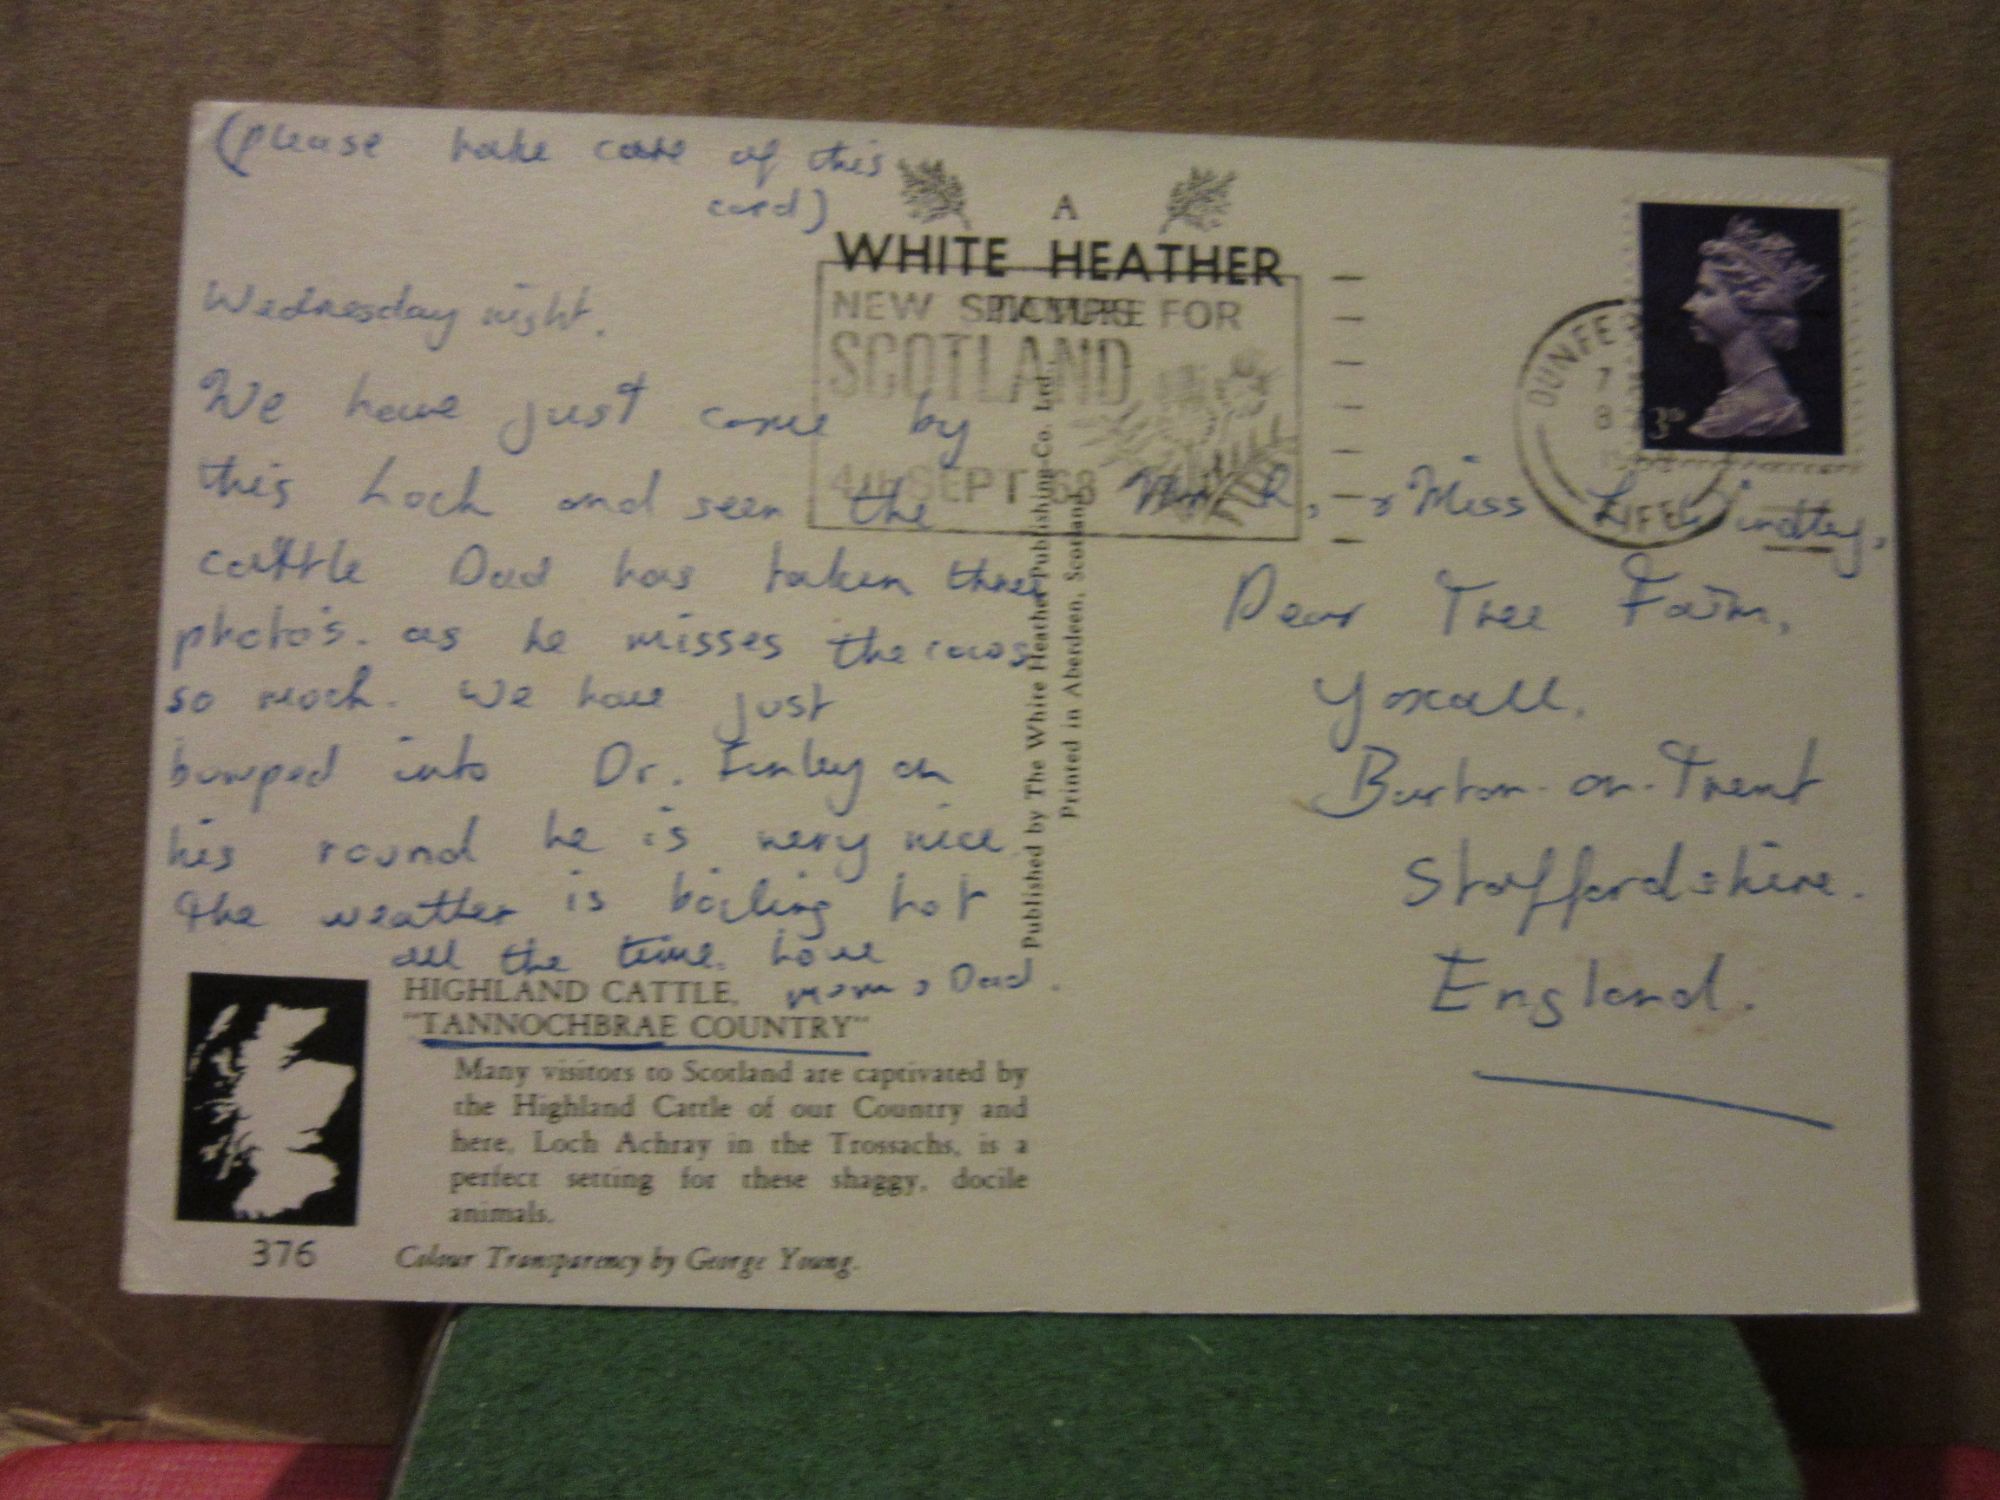 (please take care of this
card)
Wednesday night.
We have just come by
this Loch and seen the
cattle Dad has taken three
photo's. as he misses the cows
so much. We have just
bumped into Dr. Finley on
his round he is very nice
the weather is boiling hot
all the time. Love
mom & Dad.
HIGHLAND CATTLE,
"TANNOCHBRAE COUNTRY"
Many visitors to Scotland are captivated by
the Highland Cattle of our Country and
here, Loch Achray in the Trossachs, is a
perfect setting for these shaggy, docile
animals.
376
Colour Transparency by George Young.
A
WHITE HEATHER
PICTURE
NEW STAMPS FOR
SCOTLAND
4th SEPT 68
Published by The White Heather Publishing Co. Ltd.
Printed in Aberdeen, Scotland
DUNFE
7
8
FIFE
3D
& Miss
Pear Tree Farm,
Yoxall,
Burton-on-Trent
Staffordshire.
England.